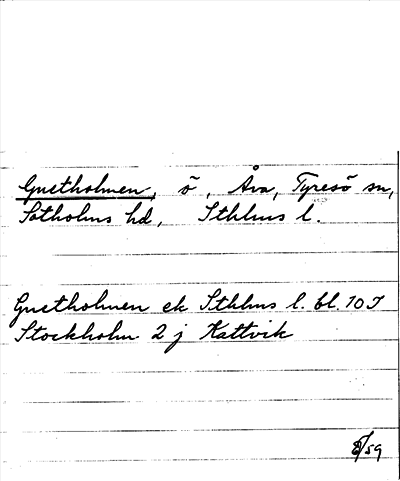 Gnetholmen, ö, Åva, Tyresö sn,
Sotholms hd, Sthlms l.
Gnetholmen ek Sthlms l. bl. 70 I
Stockholm 2 j Kattvik
8/59